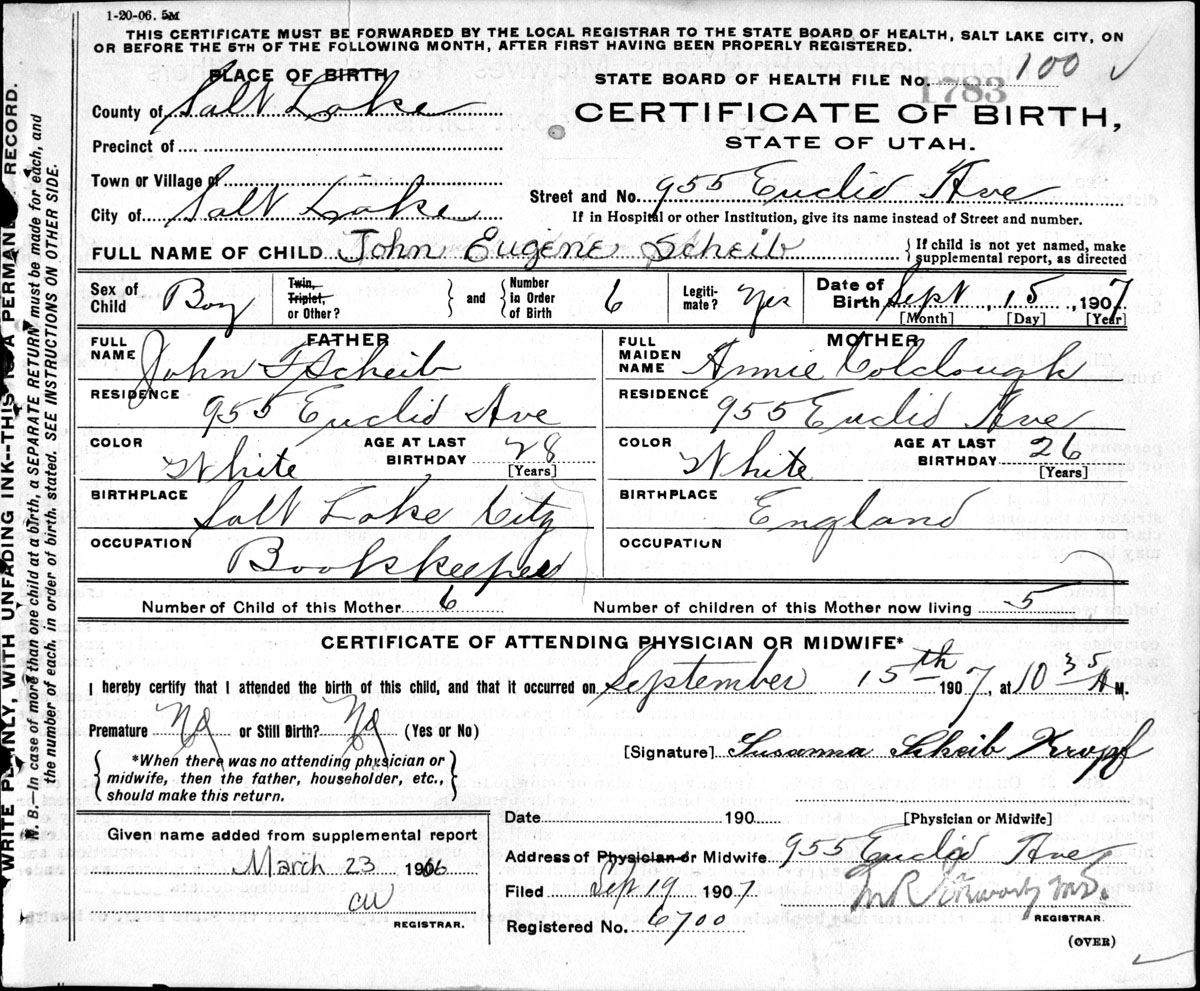 1-20-06. 5M
THIS CERTIFICATE MUST BE FORWARDED BY THE LOCAL REGISTRAR TO THE STATE BOARD OF HEALTH, SALT LAKE CITY, ON
OR BEFORE THE 5TH OF THE FOLLOWING MONTH, AFTER FIRST HAVING BEEN PROPERLY REGISTERED.
PLACE OF BIRTH
STATE BOARD OF HEALTH FILE No. 100
1783
County of Salt Lake
CERTIFICATE OF BIRTH,
Precinct of
STATE OF UTAH.
Town or Village of
Street and No. 955 Euclid Ave
City of Salt Lake
If in Hospital or other Institution, give its name instead of Street and number.
FULL NAME OF CHILD John Eugene Scheib
If child is not yet named, make
supplemental report, as directed
Sex of
Child Boy
Twin,
Triplet,
or Other?
and
Number
in Order
of Birth 6
Legiti-
mate? Yes
Date of
Birth Sept 15, 1907
[Month] [Day] [Year]
FATHER
FULL
NAME John F Scheib
RESIDENCE
955 Euclid Ave
COLOR
White
AGE AT LAST
BIRTHDAY 28
[Years]
BIRTHPLACE
Salt Lake City
OCCUPATION
Bookkeeper
MOTHER
FULL
MAIDEN
NAME Annie Colclough
RESIDENCE
955 Euclid Ave
COLOR
White
AGE AT LAST
BIRTHDAY 26
[Years]
BIRTHPLACE
England
OCCUPATION
Number of Child of this Mother 6
Number of children of this Mother now living 5
CERTIFICATE OF ATTENDING PHYSICIAN OR MIDWIFE*
I hereby certify that I attended the birth of this child, and that it occurred on September 15th 1907, at 10 35 A M.
Premature No or Still Birth? No (Yes or No)
[Signature] Susanna Scheib Kropf
*When there was no attending physician or
midwife, then the father, householder, etc.,
should make this return.
Date 190
[Physician or Midwife]
Given name added from supplemental report
March 23 1966
CW
REGISTRAR.
Address of Physician or Midwife 955 Euclid Ave
Filed Sept 19 1907
M.D.
REGISTRAR.
Registered No. 6700
(OVER)
WRITE PLAINLY, WITH UNFADING INK--THIS IS A PERMANENT RECORD.
N. B.—In case of more than one child at a birth, a SEPARATE RETURN must be made for each, and
the number of each, in order of birth, stated. SEE INSTRUCTIONS ON OTHER SIDE.